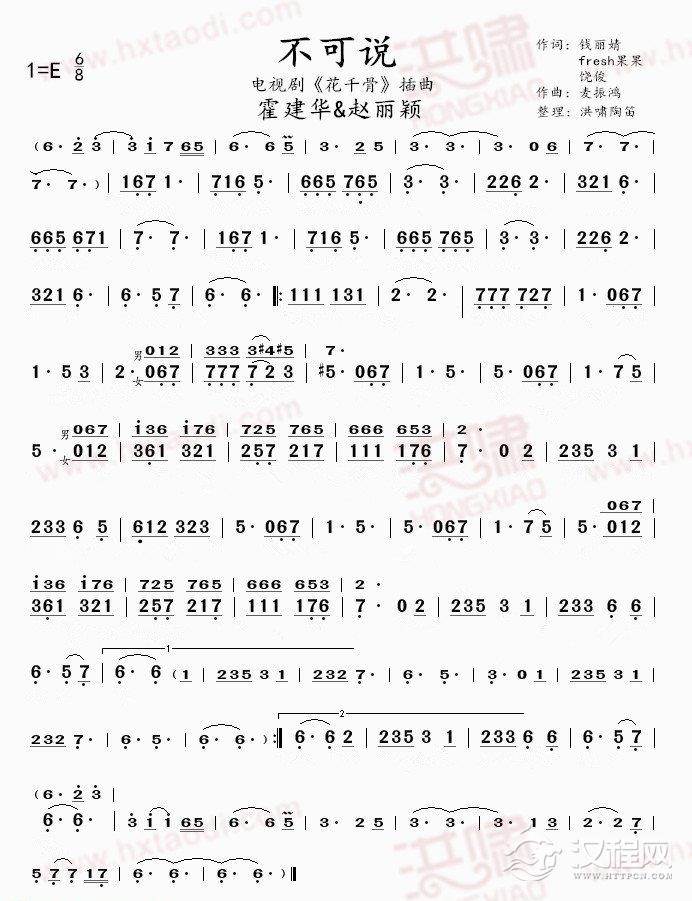 不可说
1=E 6/8
电视剧《花千骨》插曲
霍建华&赵丽颖
作词：钱丽婧
fresh果果
饶俊
作曲：麦振鸿
整理：洪啸陶笛
(6· 2 3 | 3 i 7 65 | 6· 6 5 | 3· 3· | 3· 3· | 3· 0 6 | 7· 7· |
7· 7·) | 167 1· | 716 5· | 665 765 | 3· 3· | 226 2· | 321 6· |
665 671 | 7· 7· | 167 1· | 716 5· | 665 765 | 3· 3· | 226 2· |
321 6· | 6· 5 7 | 6· 6· |: 111 131 | 2· 2· | 777 727 | 1· 067 |
男 012 | 333 3#4#5 | 7·
1· 5 3 | 2· 女 067 | 777 723 | #5· 067 | 1· 5· | 5· 067 | 1· 7 5 |
男 067 | i36 i76 | 725 765 | 666 653 | 2·
5· 女 012 | 361 321 | 257 217 | 111 176 | 7· 0 2 | 235 3 1 |
067 |
233 6 5 | 612 323 | 5· 067 | 1· 5· | 5· 067 | 1· 7 5 | 5· 012 |
i36 i76 | 725 765 | 666 653 | 2·
361 321 | 257 217 | 111 176 | 7· 0 2 | 235 3 1 | 233 6 6 |
1
6· 5 7 | 6· 6 (1 | 235 3 1 | 232 7· | 6· 5· | 3· 0 1 | 235 3 1 |
2
232 7· | 6· 5· | 6· 6· | 6· 6·) :| 6· 6 2 | 235 3 1 | 233 6 6 | 6· 5 7 |
(6· 2 3 |
6· 6· | 3 i i 65 | 6· 6 5 | 3· 3· | 3· 3· | 3· 1 3 | 2· 2 7 |
5 7 7 17 | 6· 6· | 6· 6·) |
www.hxtaodi.com
洪啸
HONGXIAO
汉程网
HTTPCN.COM